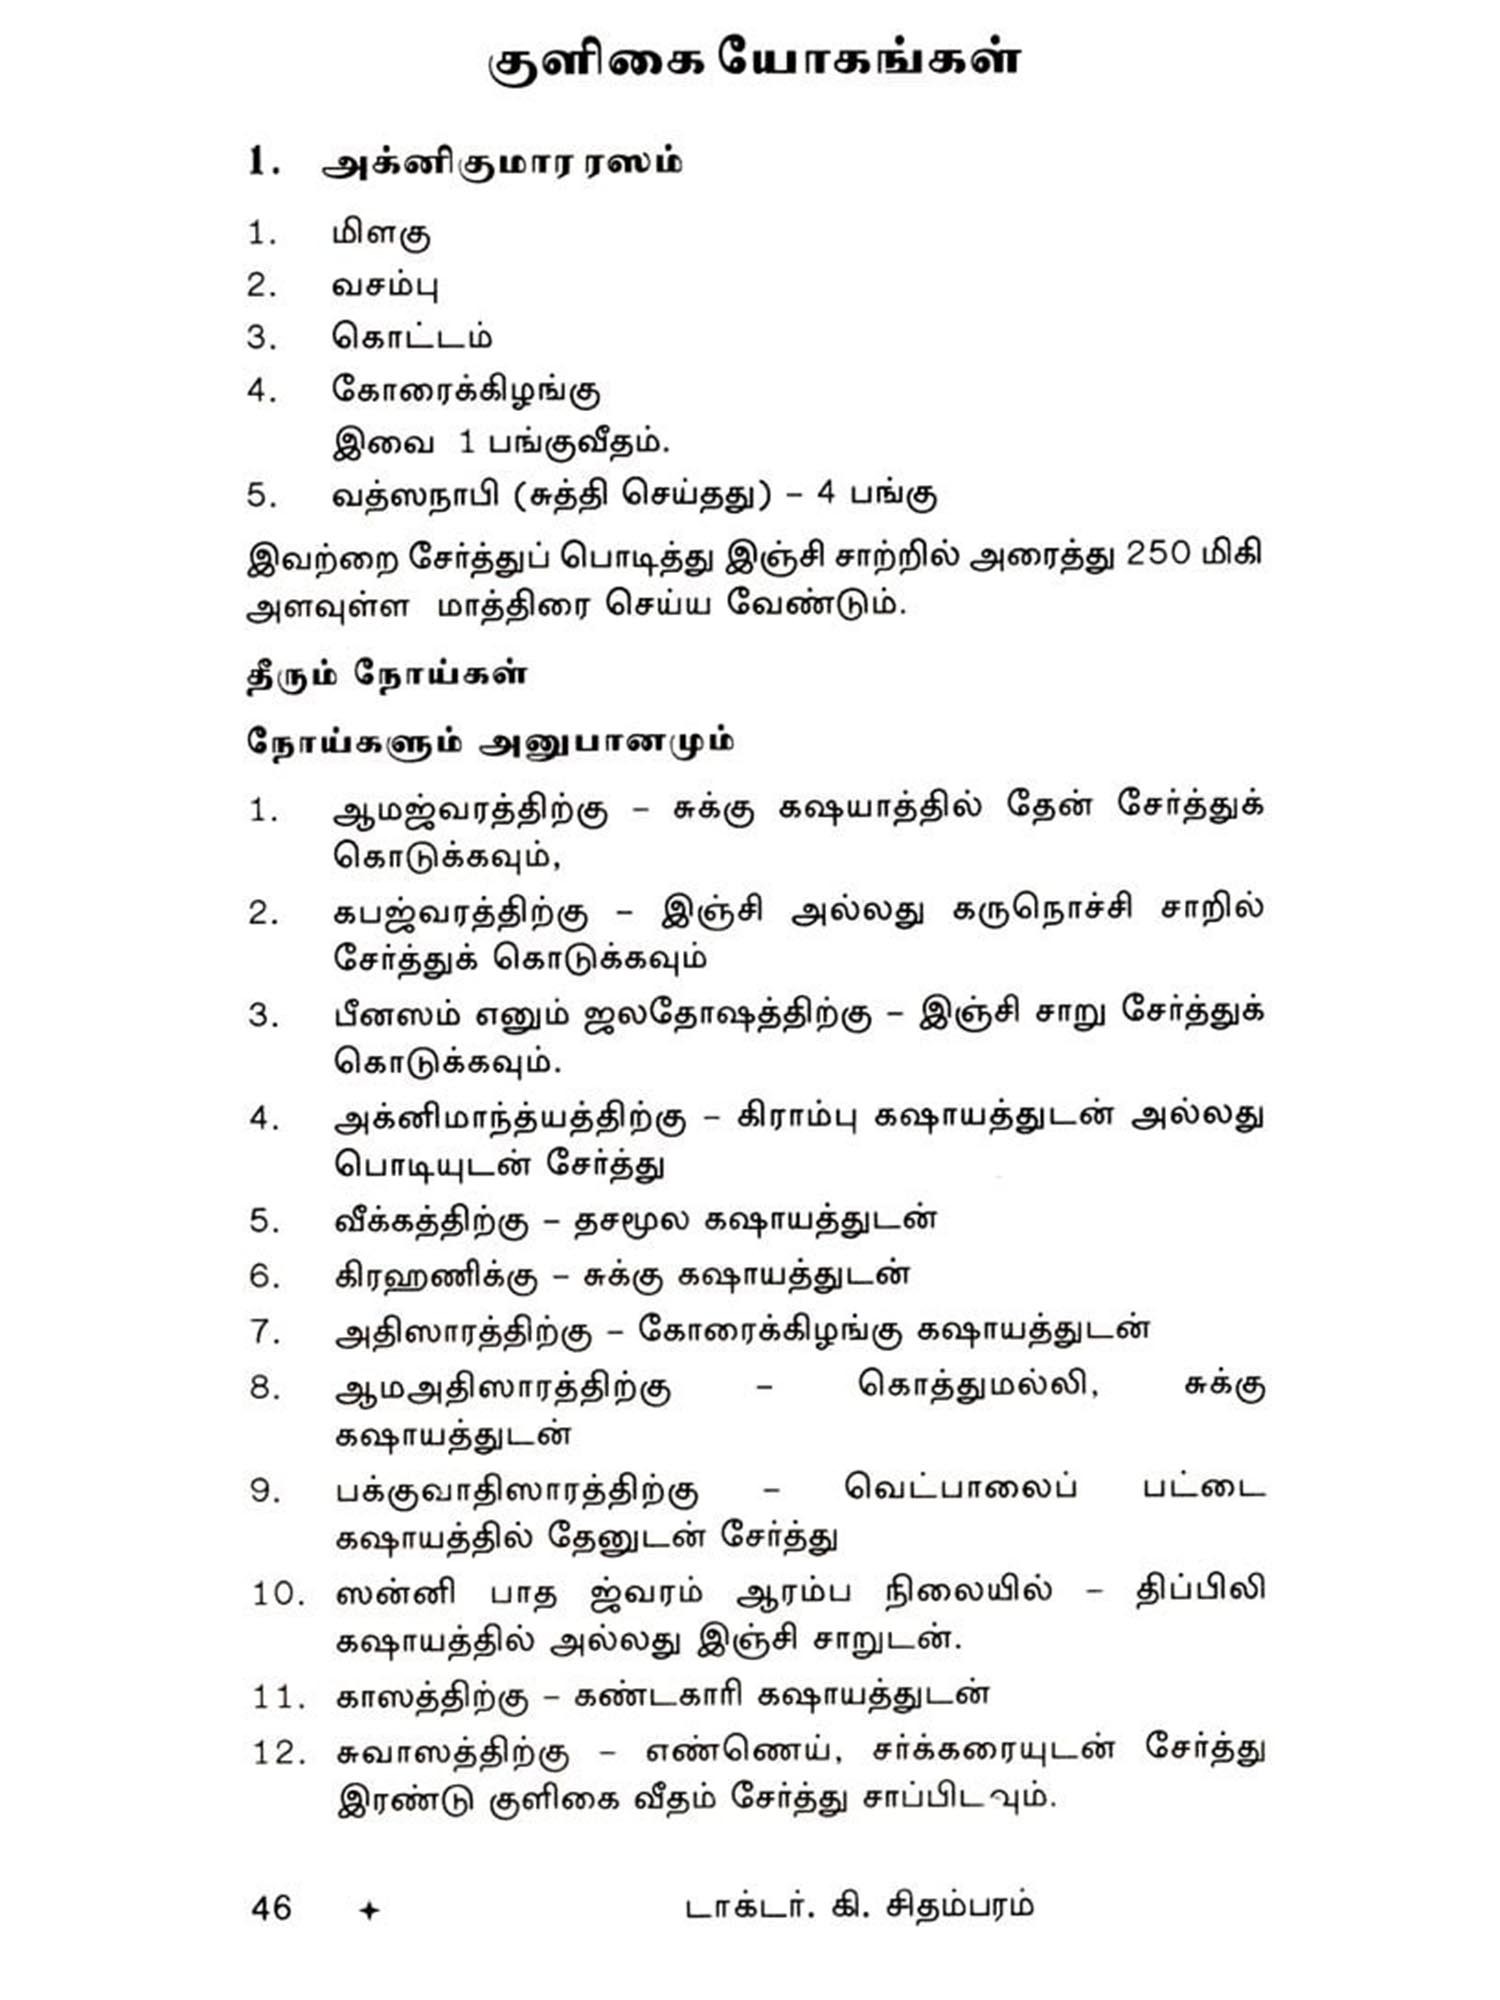 குளிகை யோகங்கள்
1. அக்னிகுமார ரஸம்
1. மிளகு
2. வசம்பு
3. கொட்டம்
4. கோரைக்கிழங்கு
இவை 1 பங்குவீதம்.
5. வத்ஸநாபி (சுத்தி செய்தது) – 4 பங்கு
இவற்றை சேர்த்துப் பொடித்து இஞ்சி சாற்றில் அரைத்து 250 மிகி
அளவுள்ள மாத்திரை செய்ய வேண்டும்.
தீரும் நோய்கள்
நோய்களும் அனுபானமும்
1. ஆமஜ்வரத்திற்கு – சுக்கு கஷயாத்தில் தேன் சேர்த்துக்
கொடுக்கவும்,
2. கபஜ்வரத்திற்கு – இஞ்சி அல்லது கருநொச்சி சாறில்
சேர்த்துக் கொடுக்கவும்
3. பீனஸம் எனும் ஜலதோஷத்திற்கு – இஞ்சி சாறு சேர்த்துக்
கொடுக்கவும்.
4. அக்னிமாந்த்யத்திற்கு – கிராம்பு கஷாயத்துடன் அல்லது
பொடியுடன் சேர்த்து
5. வீக்கத்திற்கு – தசமூல கஷாயத்துடன்
6. கிரஹணிக்கு – சுக்கு கஷாயத்துடன்
7. அதிஸாரத்திற்கு – கோரைக்கிழங்கு கஷாயத்துடன்
8. ஆமஅதிஸாரத்திற்கு – கொத்துமல்லி, சுக்கு
கஷாயத்துடன்
9. பக்குவாதிஸாரத்திற்கு – வெட்பாலைப் பட்டை
கஷாயத்தில் தேனுடன் சேர்த்து
10. ஸன்னி பாத ஜ்வரம் ஆரம்ப நிலையில் – திப்பிலி
கஷாயத்தில் அல்லது இஞ்சி சாறுடன்.
11. காஸத்திற்கு – கண்டகாரி கஷாயத்துடன்
12. சுவாஸத்திற்கு – எண்ணெய், சர்க்கரையுடன் சேர்த்து
இரண்டு குளிகை வீதம் சேர்த்து சாப்பிடவும்.
46 ✦ டாக்டர். கி. சிதம்பரம்